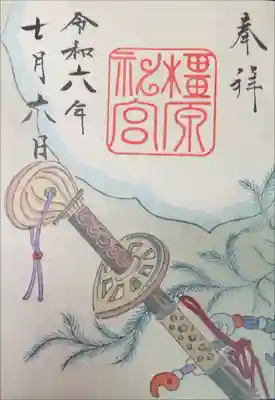 奉拝
橿原
神宮
令和六年
七月六日